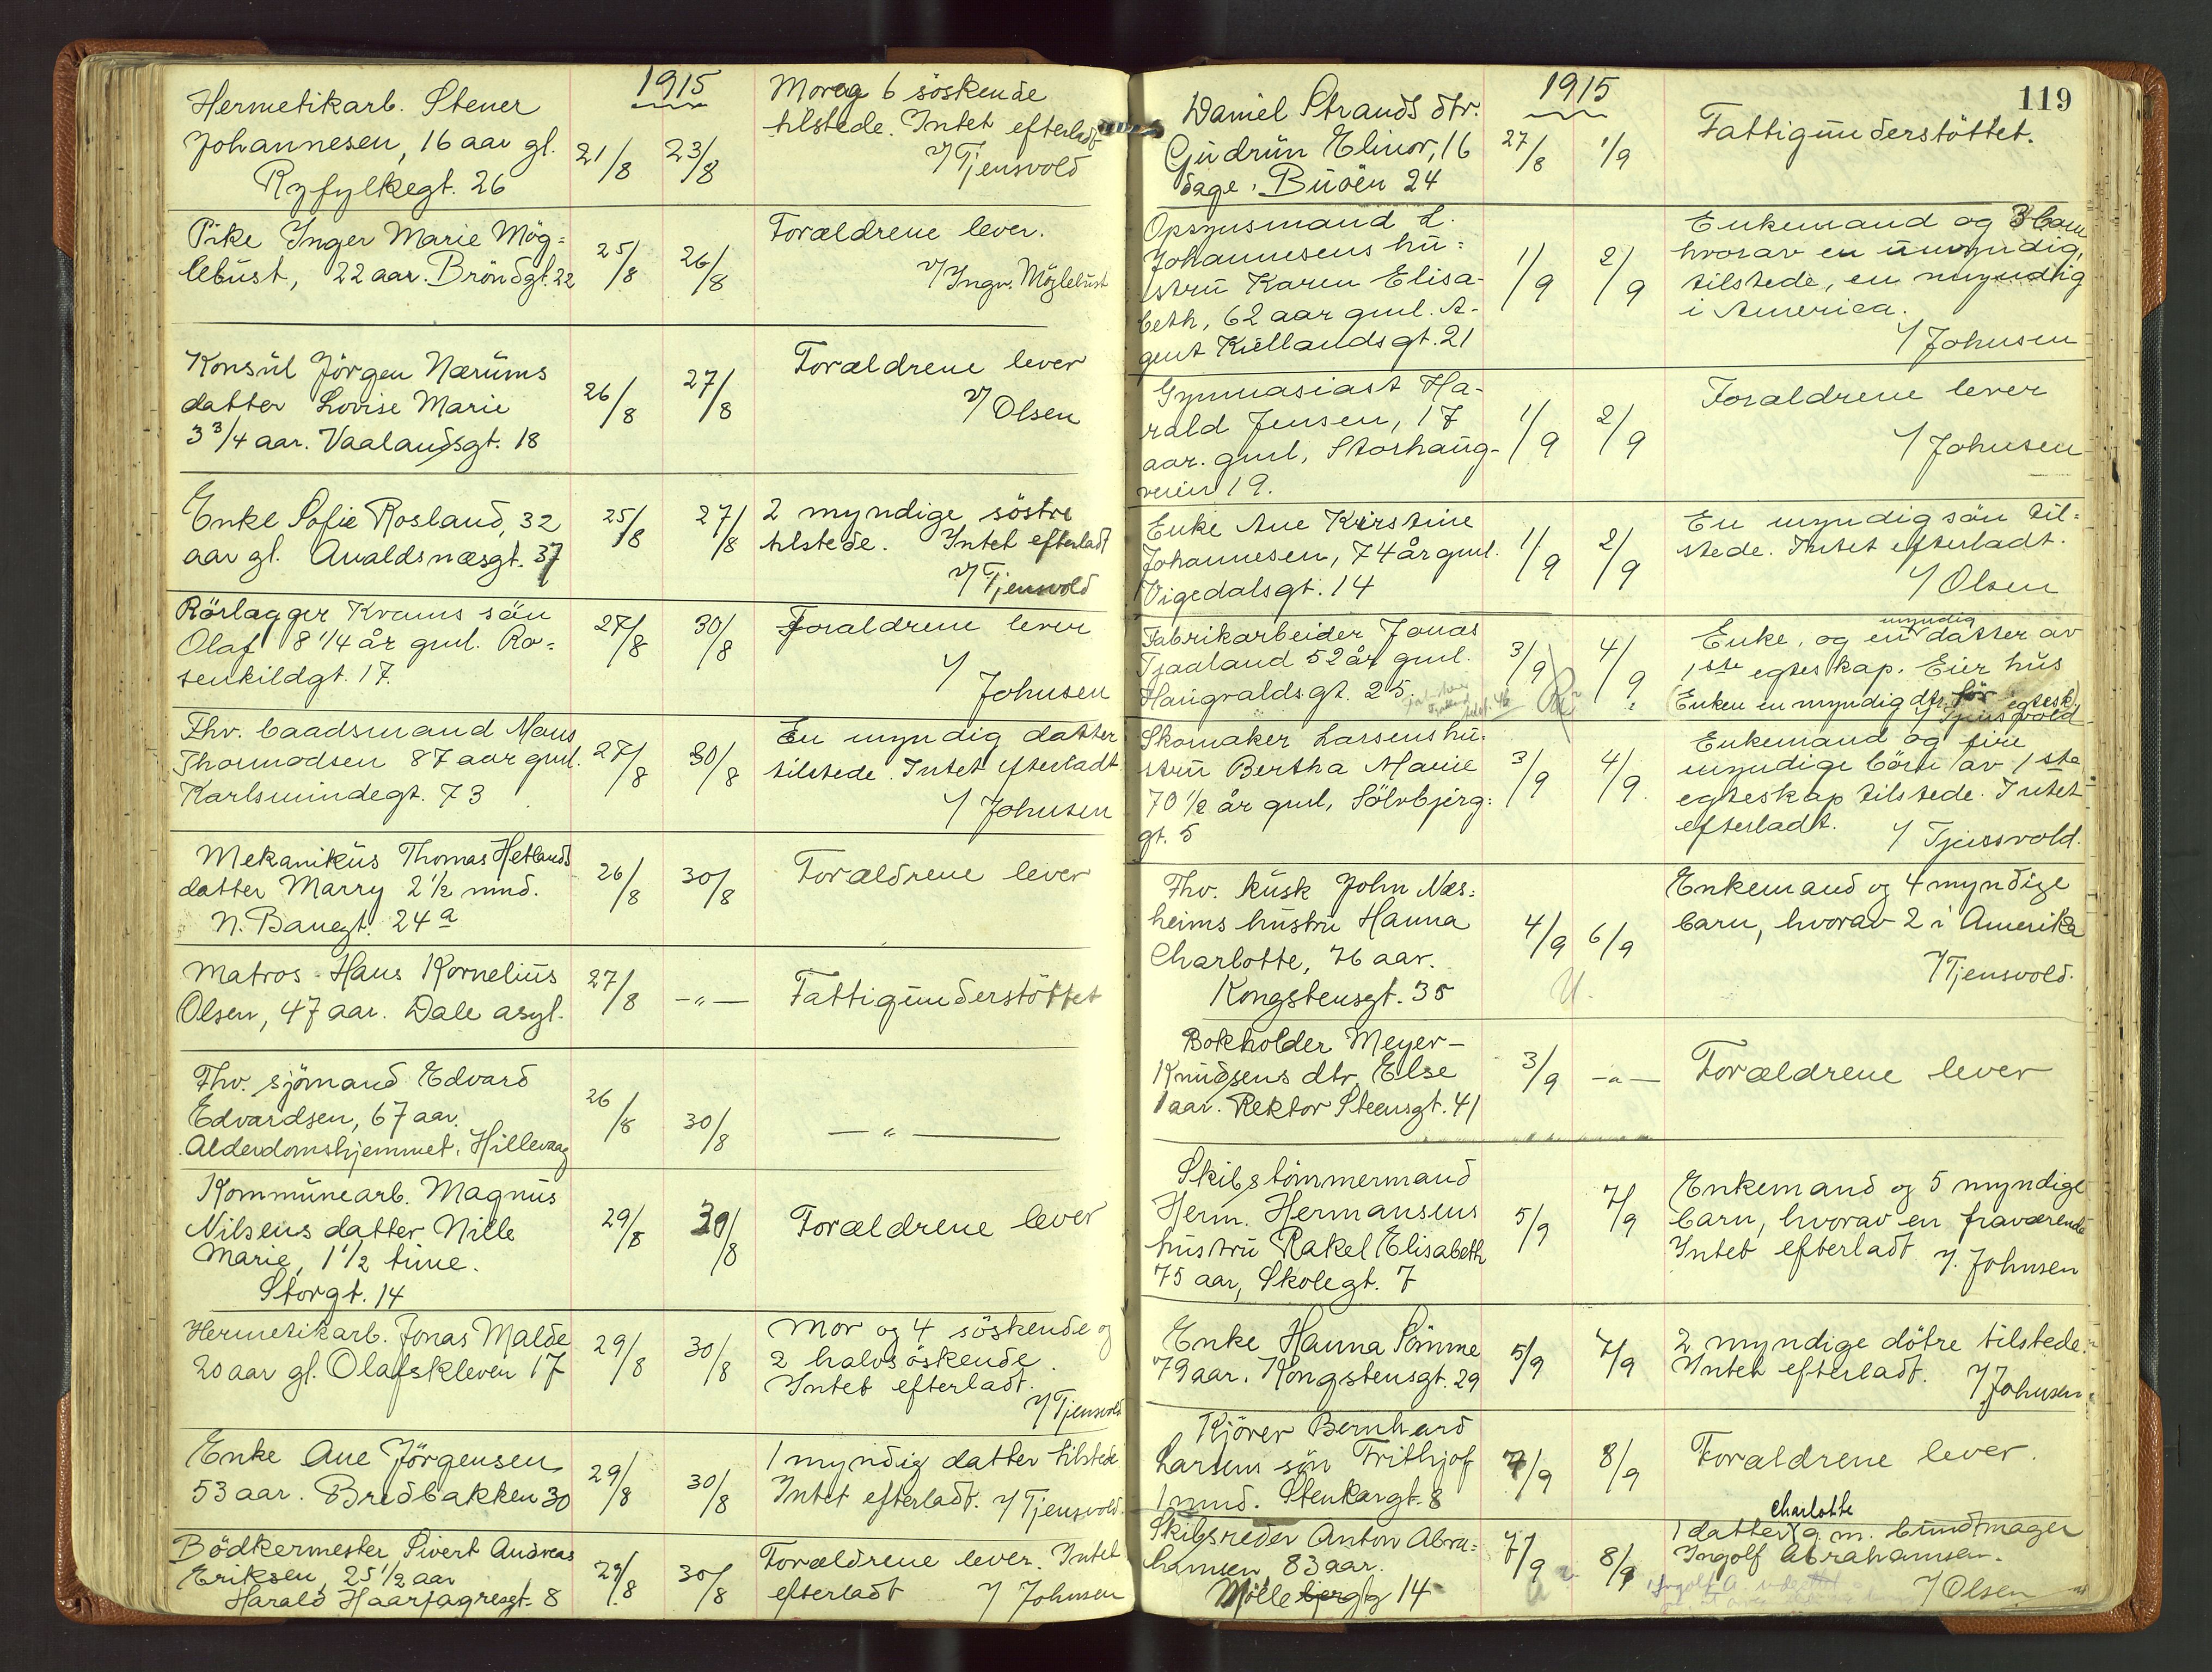 1915
Hermetikarb. Stener
Johannesen, 16 aar gl.
Ryfylkegt. 26
21/8 23/8
Mor og 6 söskende
tilstede. Intet efterladt
v/ Tjensvold
Pike Inger Marie Mög=
lebust, 22 aar. Bröndgt. 22
25/8 26/8
Forældrene lever.
v/ Ingv. Möglebust
Konsul Jörgen Nærums
datter Lovise Marie
3 3/4 aar. Vaalandsgt. 18
26/8 27/8
Forældrene lever
v/ Olsen
Enke Sofie Rosland, 32
aar gl. Avaldsnæsgt. 37
25/8 27/8
2 myndige söstre
tilstede. Intet efterladt
v/ Tjensvold
Rörlægger Kvams sön
Olaf 8 1/4 år gml. Ro=
senkildgt. 17.
27/8 30/8
Forældrene lever
v/ Johnsen
Fhv. baadsmand Mons
Thormodsen 87 aar gml.
Karlsmindegt. 73
27/8 30/8
En myndig datter
tilstede. Intet efterladt
v/ Johnsen
Mekanikus Thomas Hetlands
datter Marry 2 1/2 mnd.
N. Banegt. 24 a
26/8 30/8
Forældrene lever
Matros Hans Kornelius
Olsen, 47 aar. Dale asyl.
27/8 -"-
Fattigunderstöttet
Fhv. sjömand Edvard
Edvardsen, 67 aar.
Alderdomshjemmet. Hillevaag
26/8 30/8
-"-
Kommunearb. Magnus
Nilsens datter Nille
Marie, 1 1/2 time.
Storgt. 14
29/8 30/8
Forældrene lever
Hermetikarb. Jonas Malde
20 aar gl. Olafskleven 17
29/8 30/8
Mor og 4 söskende og
2 halvsöskende.
Intet efterladt.
v/ Tjensvold
Enke Ane Jörgensen
53 aar. Bredbakken 30
29/8 30/8
1 myndig datter tilstede
Intet efterladt. v/ Tjensvold.
Bödkermester Sivert Andreas
Eriksen, 25 1/2 aar
Harald Haarfagresgt. 8
29/8 30/8
Forældrene lever. Intet
efterladt v/ Johnsen
1915
119
Daniel Strands dtr.
Gudrun Elinor, 16
dage. Buöen 24
27/8 1/9
Fattigunderstöttet.
Opsynsmand L.
Johannesens hu=
stru Karen Elisa-
beth, 62 aar gml. A-
gent Kiellandsgt. 21
1/9 2/9
Enkemand og 3 barn
hvorav en umyndig,
tilstede, en myndig
i America.
v/ Johnsen
Gymnasiast Ha-
rald Jensen, 17
aar. gml, Storhaug-
veien 19.
1/9 2/9
Forældrene lever
v/ Johnsen
Enke Ane Kirstine
Johannesen, 74 år gml.
Vigedalsgt. 14
1/9 2/9
En myndig sön til=
stede. Intet efterladt.
v/ Olsen
Fabrikarbeider Jonas
Tjaaland 52 år gml.
Haugvaldsgt. 25.
3/9 4/9
Enke, og en myndig datter av
1ste egteskap. Eier hus
(Enken en myndig dtr. för egtesk)
v/ Tjensvold
Skomaker Larsens hu=
stru Bertha Marie
70 1/2 år gml, Sölvbjerg=
gt. 5
3/9 4/9.
Enkemand og fire
myndige börn av 1ste
egteskap tilstede. Intet
efterladt. v/ Tjensvold.
Fhv. kusk John Næs=
heims hustru Hanna
Charlotte, 76 aar.
Kongstensgt. 35
4/9 6/9
U.
Enkemand og 4 myndige
barn, hvorav 2 i Amerika
v/ Tjensvold.
Bokholder Meyer-
Knudsens dtr. Else
1 aar. Rektor Steensgt. 41
3/9 -"-
Forældrene lever
Skibstömmermand
Herm. Hermansens
hustru Rakel Elisabeth
75 aar, Skolegt. 7
5/9 7/9
Enkemand og 5 myndige
barn, hvorav en fraværende
Intet efterladt v/ Johnsen
Enke Hanna Sömme
79 aar. Kongstensgt. 29
5/9 7/9
2 myndige dötre tilstede.
Intet efterladt. v/ Johnsen.
Kjörer Bernhard
Larsens sön Frithjof
1 mnd. Stenkargt. 8
7/9 8/9
Forældrene lever.
Skibsreder Anton Abra=
hamsen 83 aar.
Möllebjergg 14
7/9 8/9
Charlotte
1 datter g. m. bundtmager
Ingolf Abrahamsen.
v/ Olsen